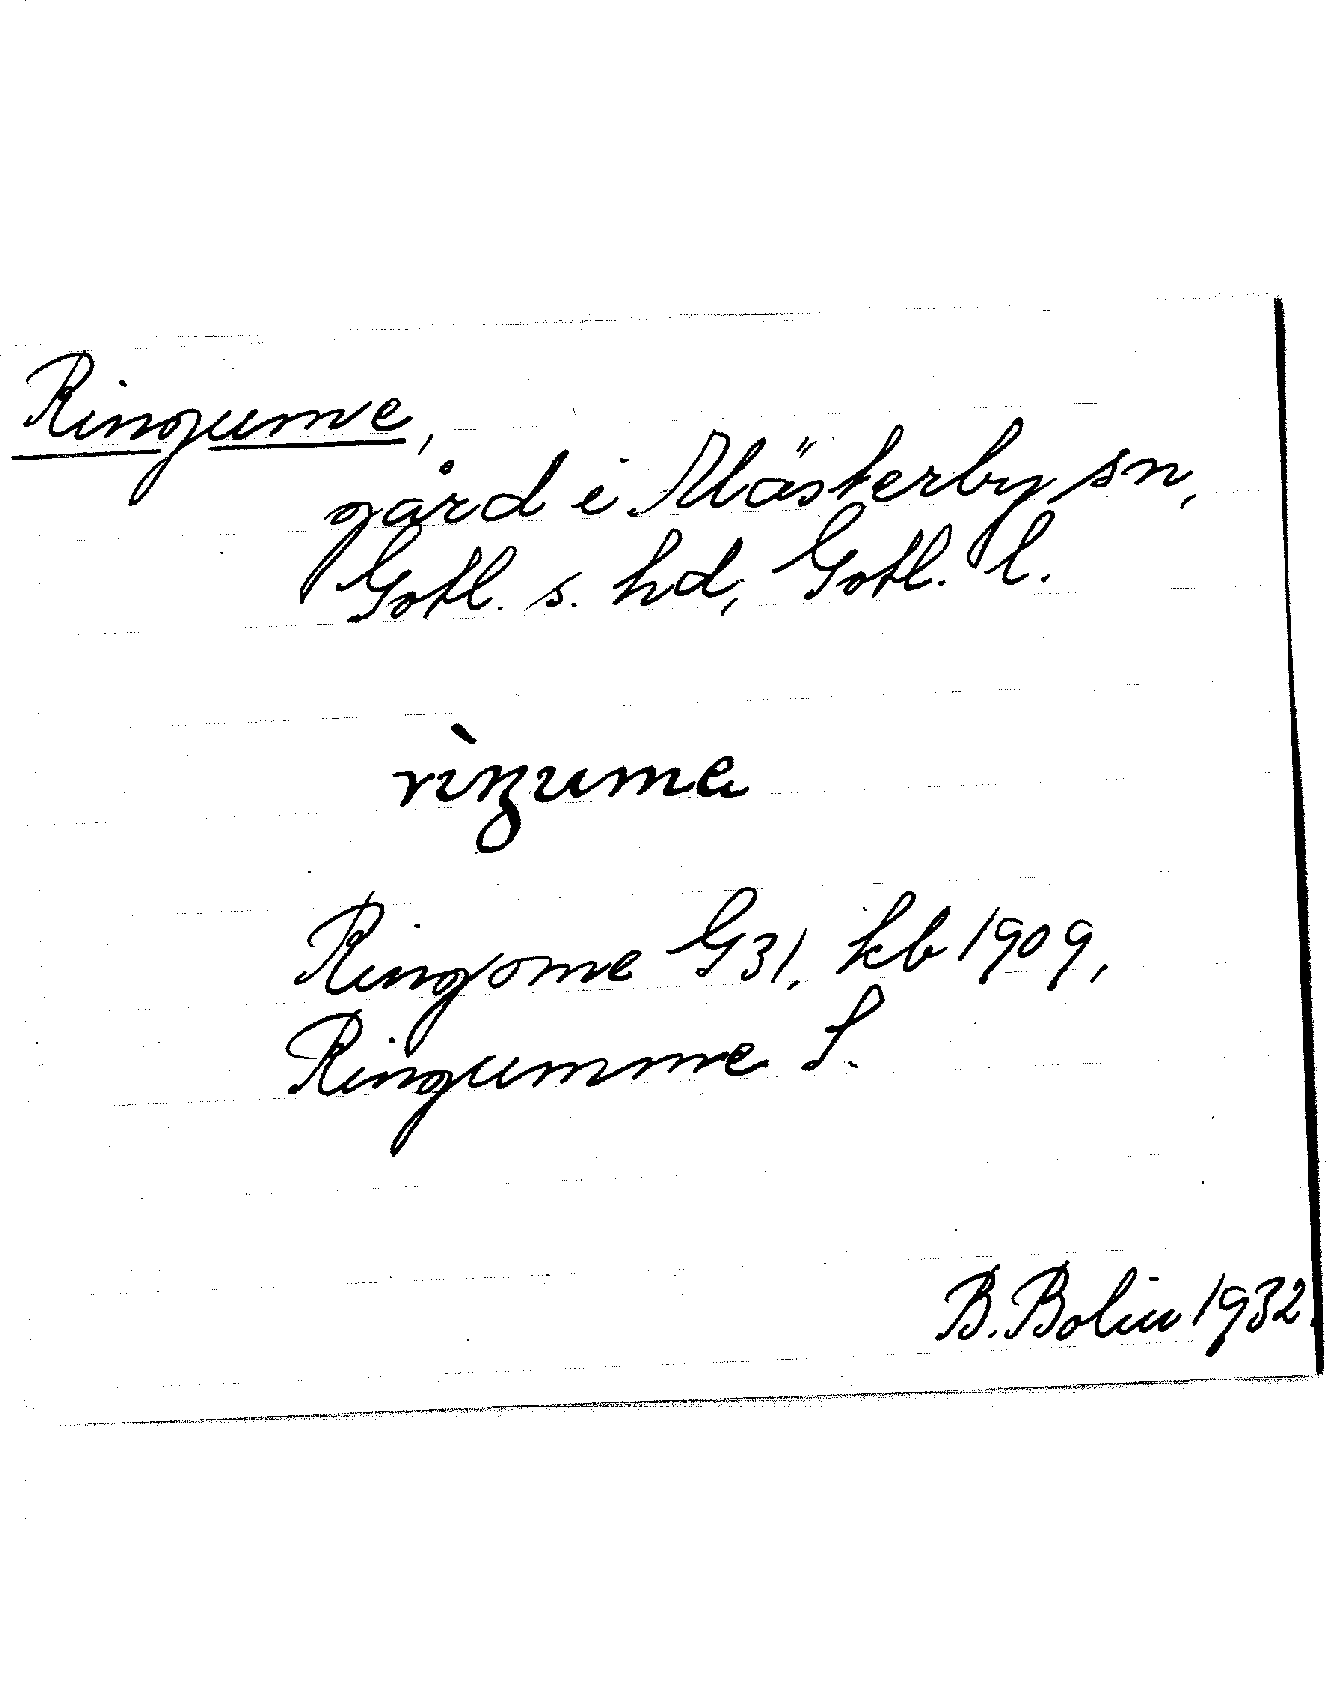 Ringume,
gård i Mästerby sn,
Gotl. s. hd, Gotl. l.
rìŋuma
Ringome G31, kb 1909,
Ringumme S.
B. Bolin 1932.